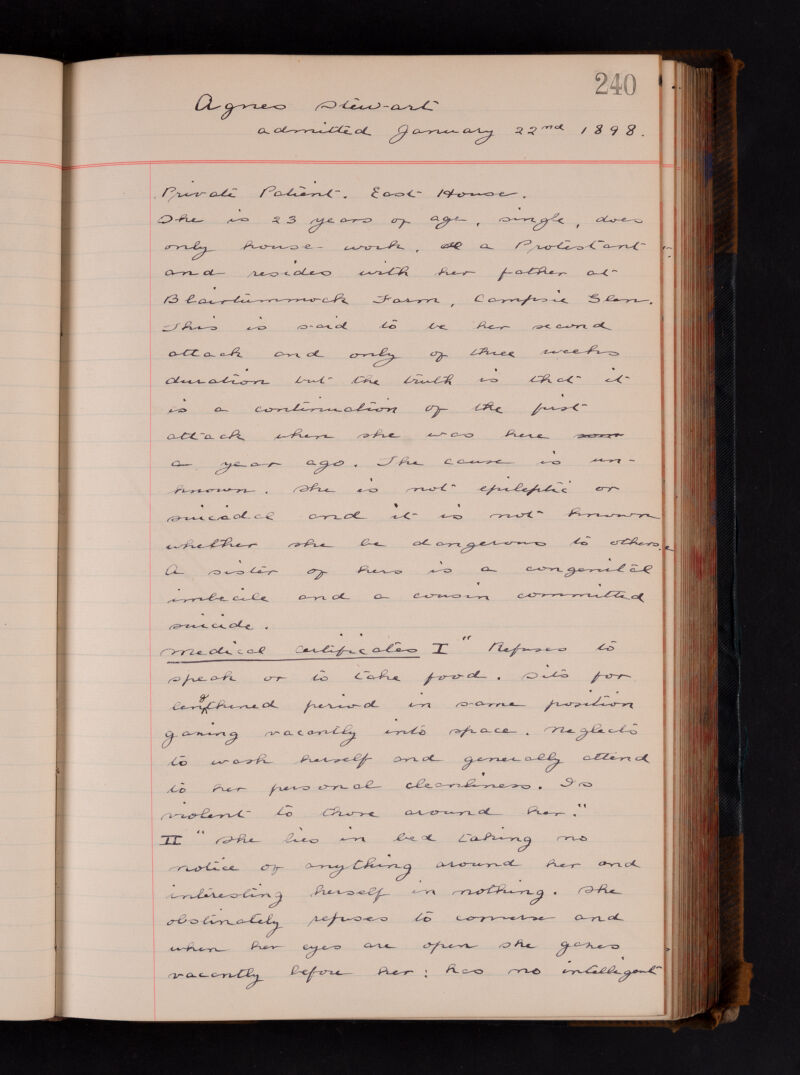 240
Agnes Stewart
admitted January 22nd 1898.
Private Patient. East House.
She is 23 years of age, single, does
only house-work, a Protestant
and resides with her father at
Blairtummock Farm, Campsie Glen.
This is said to be her second
attack and only of three weeks
duration but the truth is that it
is a continuation of the first
attack when she was here
a year ago. The cause is un-
known. She is not epileptic or
suicidal and it is not known
whether she be dangerous to others.
A sister of hers is a congenital
imbecile and a cousin committed
suicide.
Medical Certificates I "Refuses to
speak or to take food. Sits for
lengthened period in same position
gazing vacantly into space. Neglects
to wash herself and generally attend
to her personal cleanliness. Is
violent to those around her."
II "She lies in bed taking no
notice of anything around her and
interesting herself in nothing. She
obstinately refuses to converse and
when her eyes are open she gazes
vacantly before her: has no intelligent